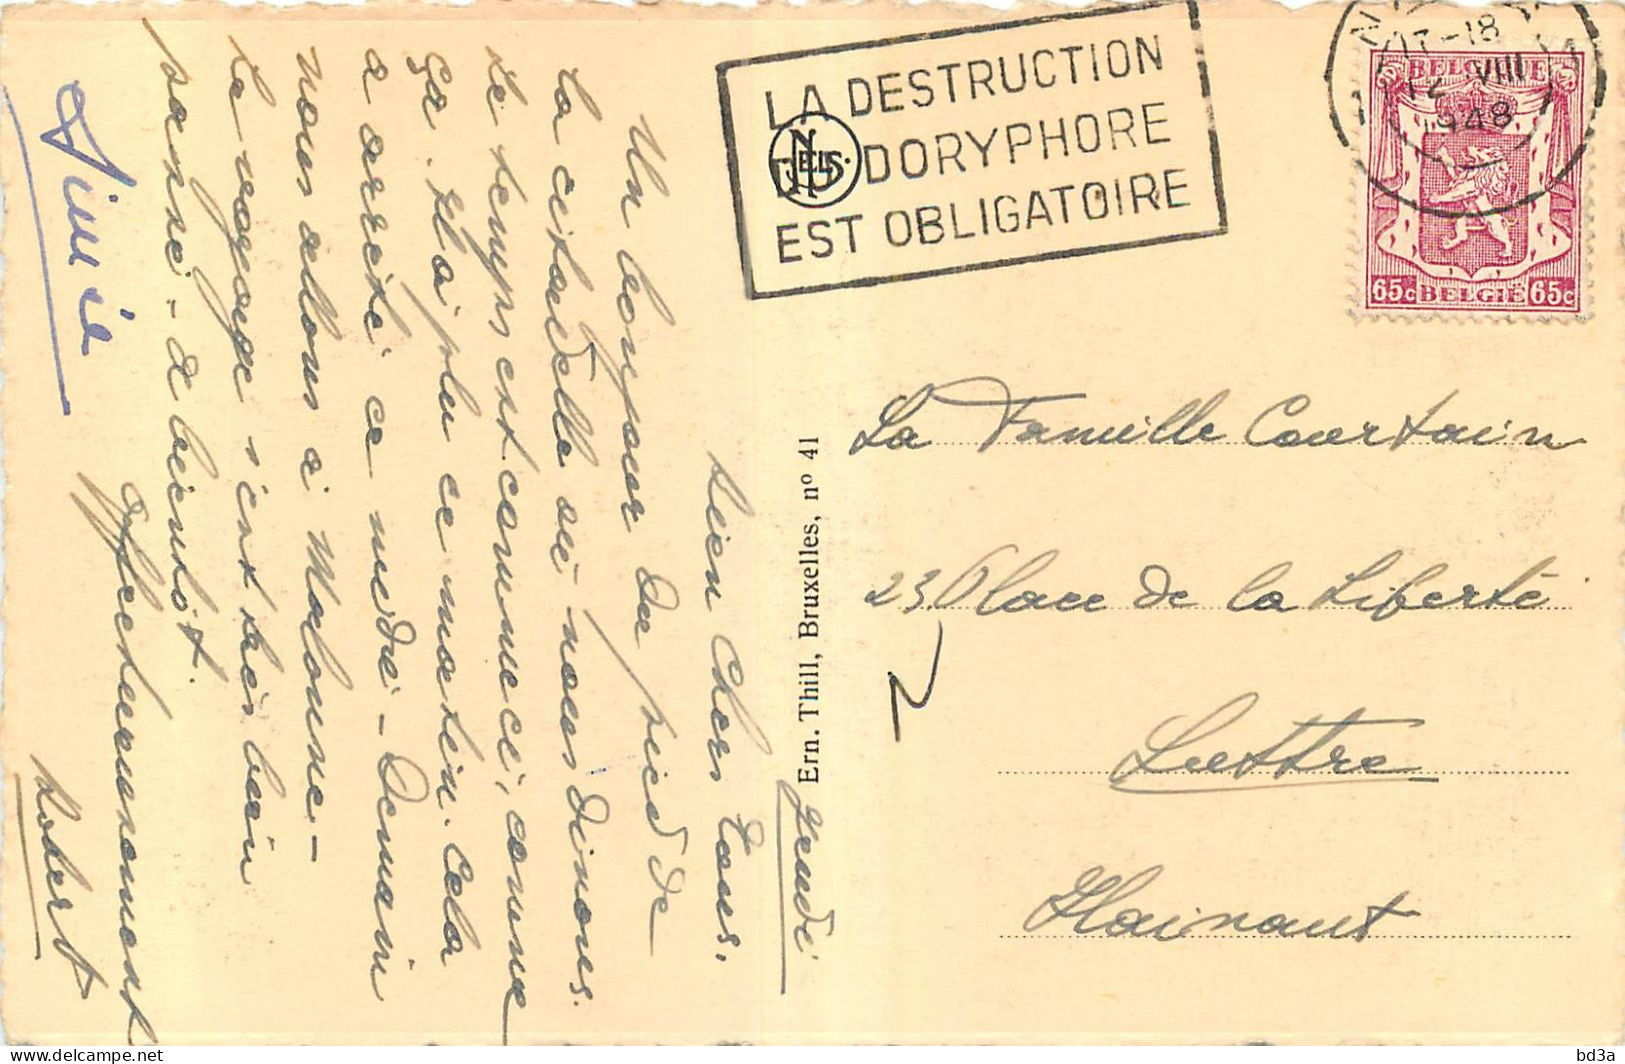 LA DESTRUCTION
DU DORYPHORE
EST OBLIGATOIRE
NELS
17-18
12 VIII
1948
BELGIQUE
65c BELGIË 65c
Jeudi
Bien Chers Tous,
Un bonjour du pied de
la citadelle où nous dinons.
Le temps est comme ci, comme
ça. Il a plu ce matin. Cela
a arrêté ce midi - Demain
nous allons à Malonne -
Le voyage s'est très bien
passé - à bientôt.
Affectueusement
Robert
Simie
Ern. Thill, Bruxelles, nº 41
La Famille Courtain
23 Place de la Liberté
Luttre
Hainaut
bd3a